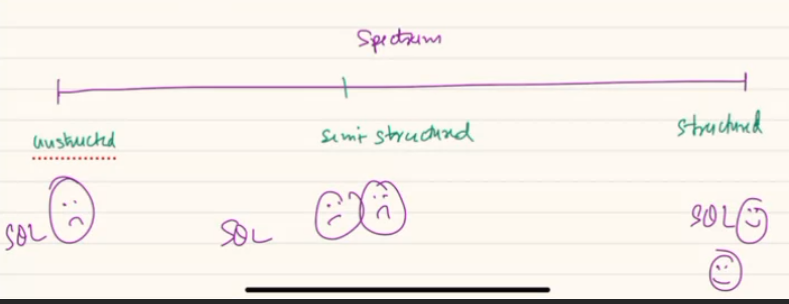 Spectrum
unstructd semi structured structured
SQL SQL SQL